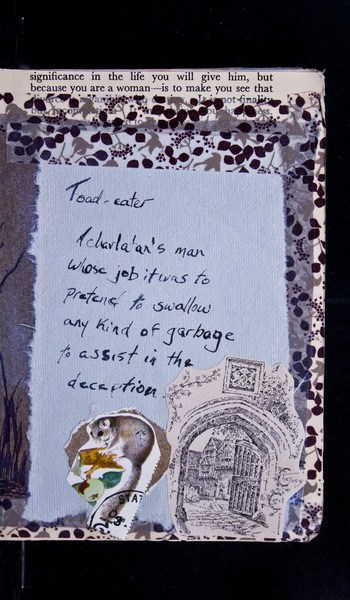 significance in the life you will give him, but
because you are a woman—is to make you see that
Toad-eater
A charlatan's man
whose job it was to
pretend to swallow
any kind of garbage
to assist in the
deception.
STA